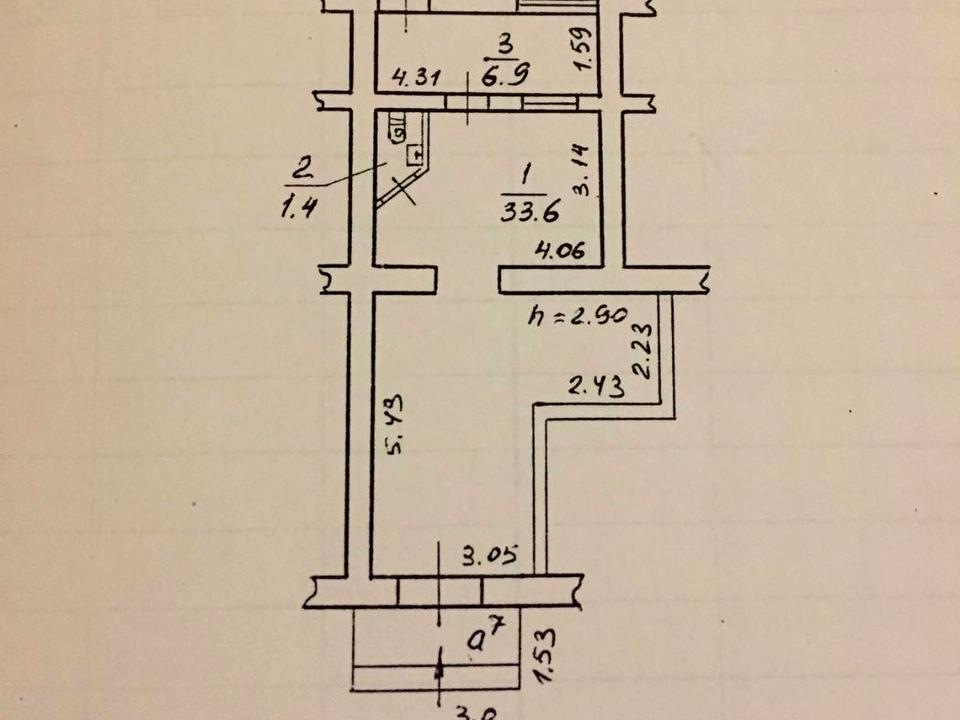 3
6.9
1.59
4.31
2
1.4
1
33.6
3.14
4.06
h = 2.90
2.23
2.43
5.43
3.05
a7
1.53